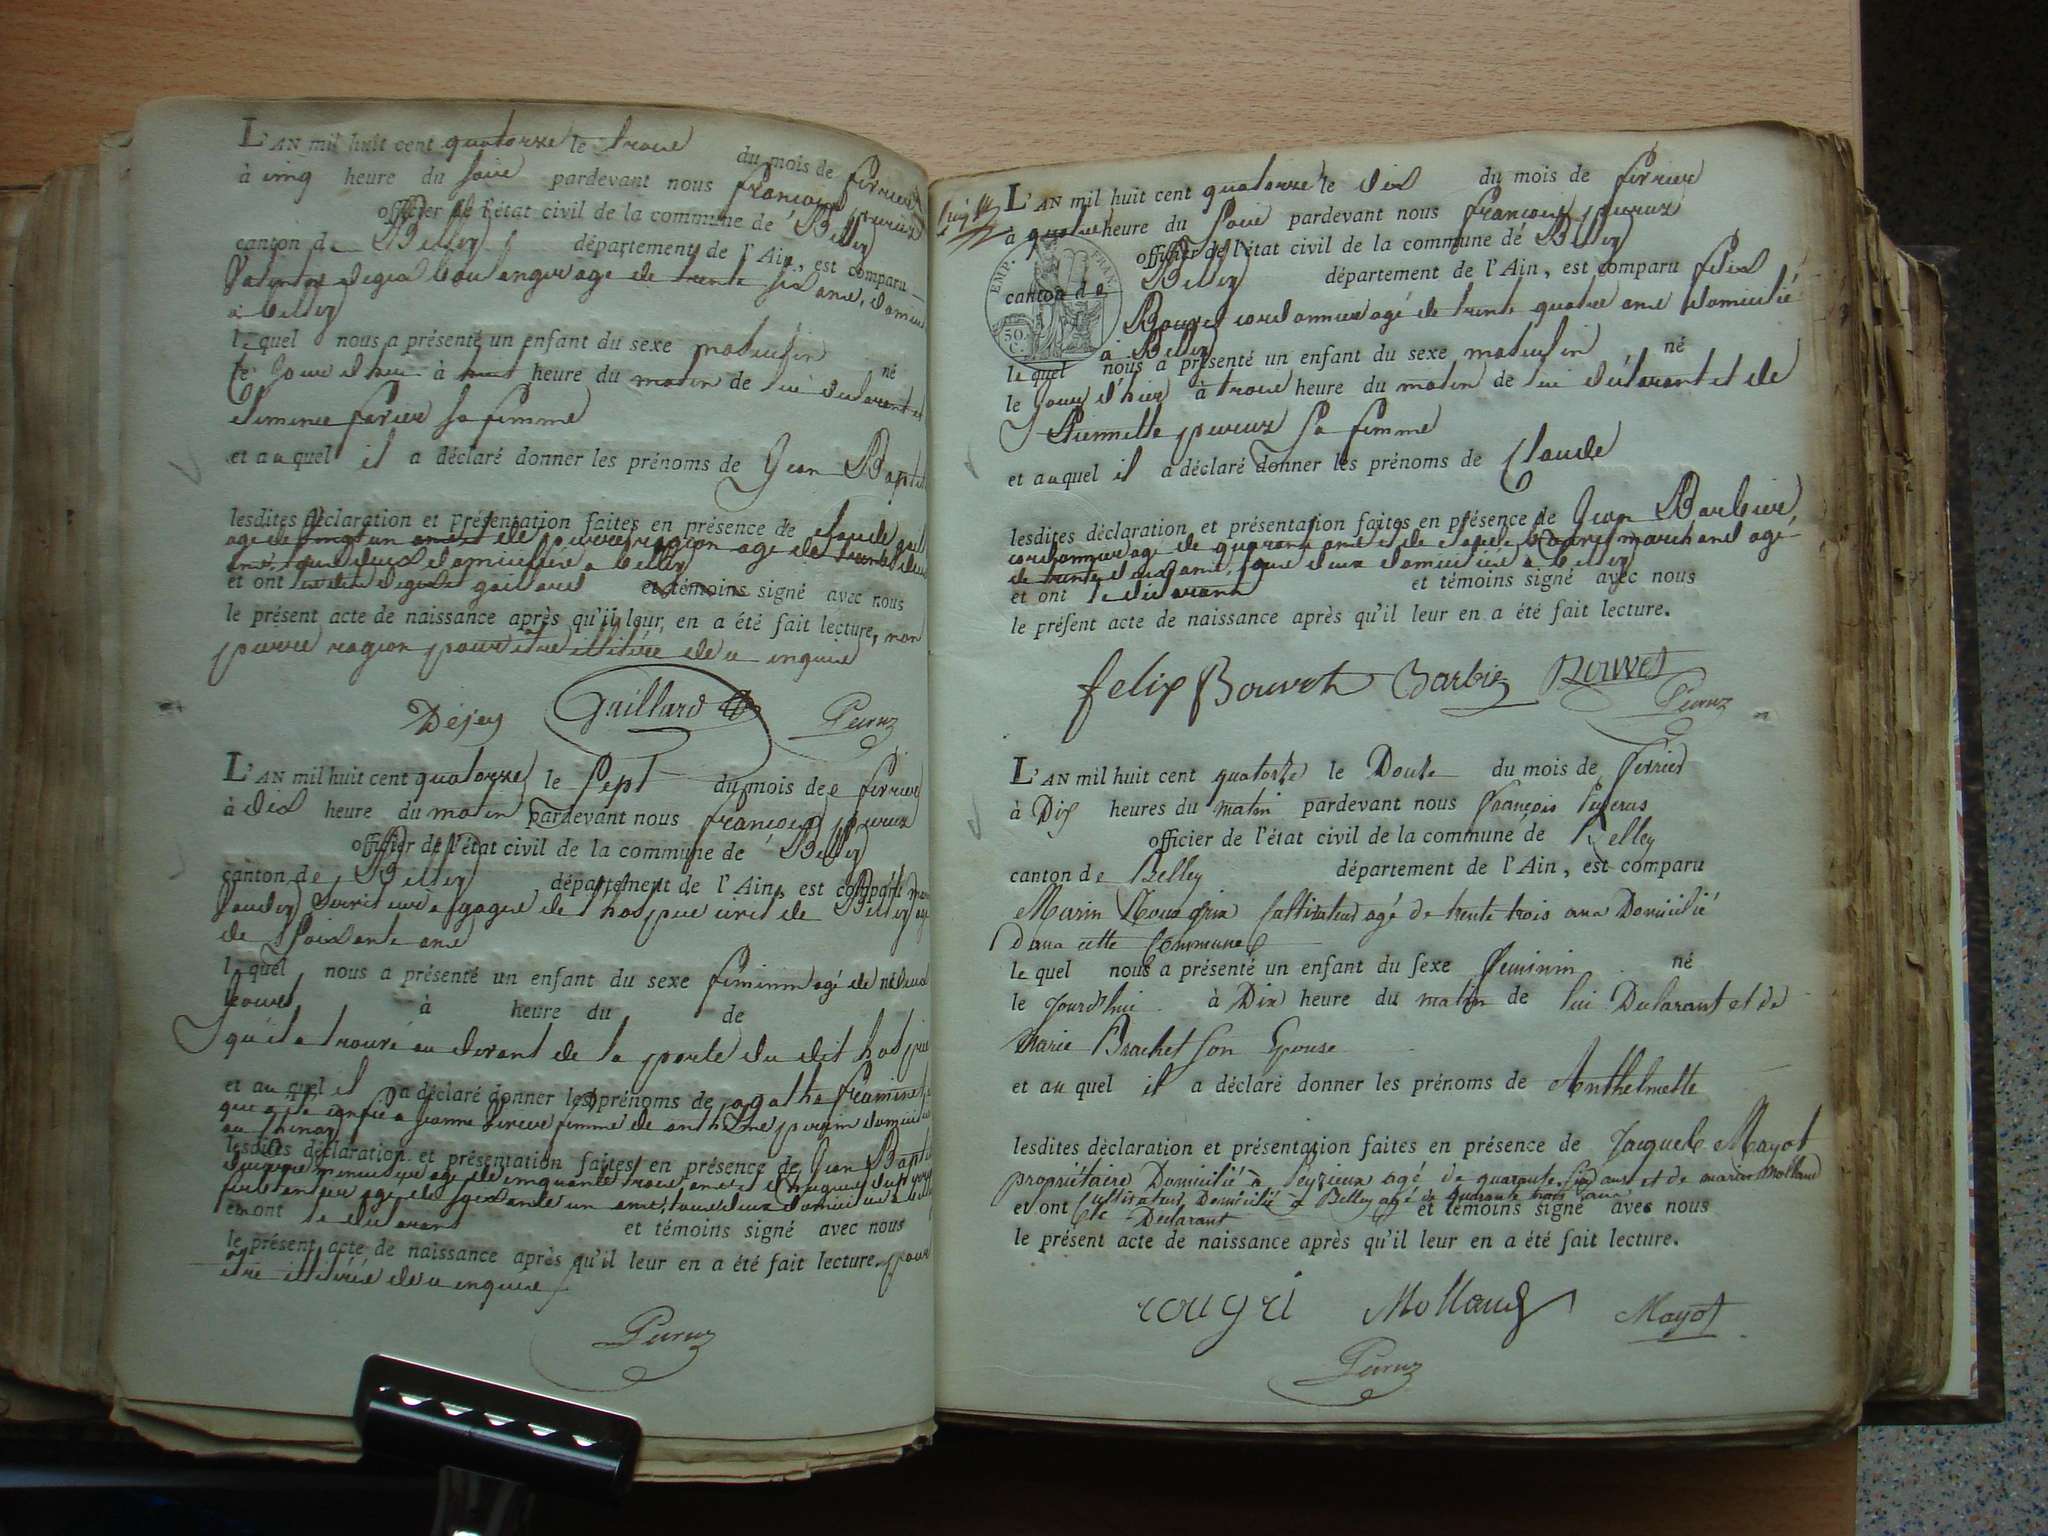 L'AN mil huit cent quatorze le trois du mois de fevrier
à cinq heure du soir pardevant nous françois peyruz
officier de l'état civil de la commune de Belley
canton de Belley département de l'Ain, est comparu
boulanger agé de trente six ans, domicilié
à belley
lequel nous a présenté un enfant du sexe masculin né
le jour d'hui à huit heure du matin de lui déclarant et
sa femme
et auquel il a déclaré donner les prénoms de Jean Baptiste
lesdites déclaration et présentation faites en présence de claude
agé de vingt un ans et de pierre ragion agé de trente deux
ans, tous deux domiciliés à belley
et ont gaillard et témoins signé avec nous
le présent acte de naissance après qu'il leur en a été fait lecture, non
pierre ragion pour être illitéré de ce inquis
Dejey Gaillard Peyruz
L'AN mil huit cent quatorze le sept du mois de fevrier
à dix heure du matin pardevant nous françois peyruz
officier de l'état civil de la commune de Belley
canton de Belley département de l'Ain, est comparu
serviteur a gages de l'hospice civil de Belley agé
de soixante ans
lequel nous a présenté un enfant du sexe féminin agé de né deux
jours à heure du de
qu'il a trouvé au devant de la porte du dit hospice
et auquel il a déclaré donner les prénoms de agathe
que a été confié a Jeanne femme de anthelme domicilié
lesdites déclaration et présentation faites en présence de Jean Baptiste
agé de cinquante trois ans et de
agé de soixante un ans, tous deux domiciliés a belley
et ont le déclarant et témoins signé avec nous
le présent acte de naissance après qu'il leur en a été fait lecture, pour
être illitérés de ce inquis
Peyruz
L'AN mil huit cent quatorze le dix du mois de fevrier
à quatre heure du soir pardevant nous françois peyruz
officier de l'état civil de la commune de Belley
canton de Belley département de l'Ain, est comparu felix
EMP. FRAN. 50 C.
Bouvet cordonnier agé de trente quatre ans domicilié
à Belley
lequel nous a présenté un enfant du sexe masculin né
le jour d'hier à trois heure du matin de lui déclarant et de
peyruz sa femme
et auquel il a déclaré donner les prénoms de Claude
lesdites déclaration et présentation faites en présence de Jean Barbier
cordonnier agé de quarante ans et de claude bouvet marchand agé
de trente deux ans, tous deux domiciliés à belley
et ont le déclarant et témoins signé avec nous
le présent acte de naissance après qu'il leur en a été fait lecture.
felix Bouvet Barbier Bouvet
Peyruz
L'AN mil huit cent quatorze le Douze du mois de fevrier
à Dix heures du matin pardevant nous françois Peyruz
officier de l'état civil de la commune de Belley
canton de Belley département de l'Ain, est comparu
Marin Cultivateur agé de trente trois ans Domicilié
dans cette Commune
lequel nous a présenté un enfant du sexe Feminin né
le jourd'hui à Dix heure du matin de lui Déclarant et de
Marie Brachet son Epouse
et auquel il a déclaré donner les prénoms de Anthelmette
lesdites déclaration et présentation faites en présence de Jacques Mayot
propriétaire Domicilié à Peyzieux agé de quarante six ans et de marin Molland
Cultivateur Domicilié à Belley agé de quarante trois ans
et ont le Déclarant et témoins signé avec nous
le présent acte de naissance après qu'il leur en a été fait lecture.
rougri Molland Mayot
Peyruz